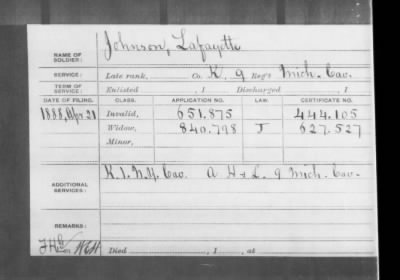 NAME OF SOLDIER: Johnson, Lafayette
SERVICE: Late rank, Co. K, 9 Reg't Mich. Cav.
TERM OF SERVICE: Enlisted , 1 Discharged , 1
DATE OF FILING. CLASS. APPLICATION NO. LAW. CERTIFICATE NO.
1888, Apr. 21 Invalid, 651.875 444.105
Widow, 840.798 J 627.527
Minor,
ADDITIONAL SERVICES: K. 1. N.Y. Cav. A. H + L. 9 Mich. Cav.
REMARKS:
Died , 1 , at